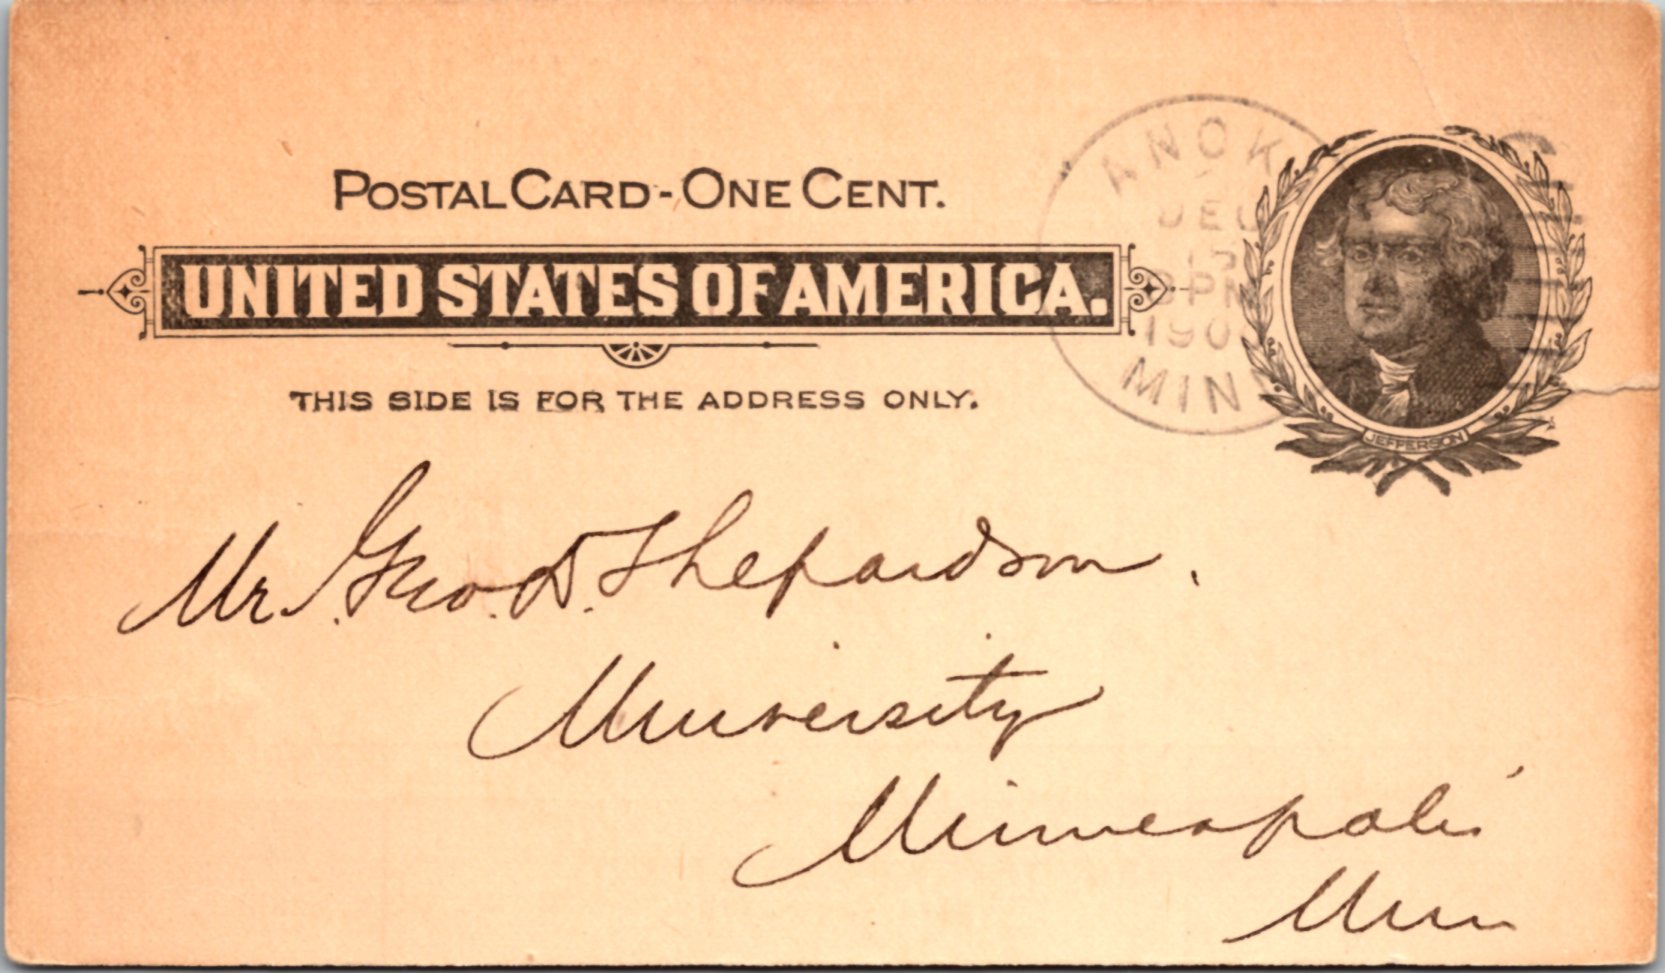 POSTAL CARD - ONE CENT.
UNITED STATES OF AMERICA.
THIS SIDE IS FOR THE ADDRESS ONLY.
ANOK
DEC
15
PM
190
MINN
JEFFERSON
Mr. Geo. D. Shepardson.
University
Minneapolis
Minn